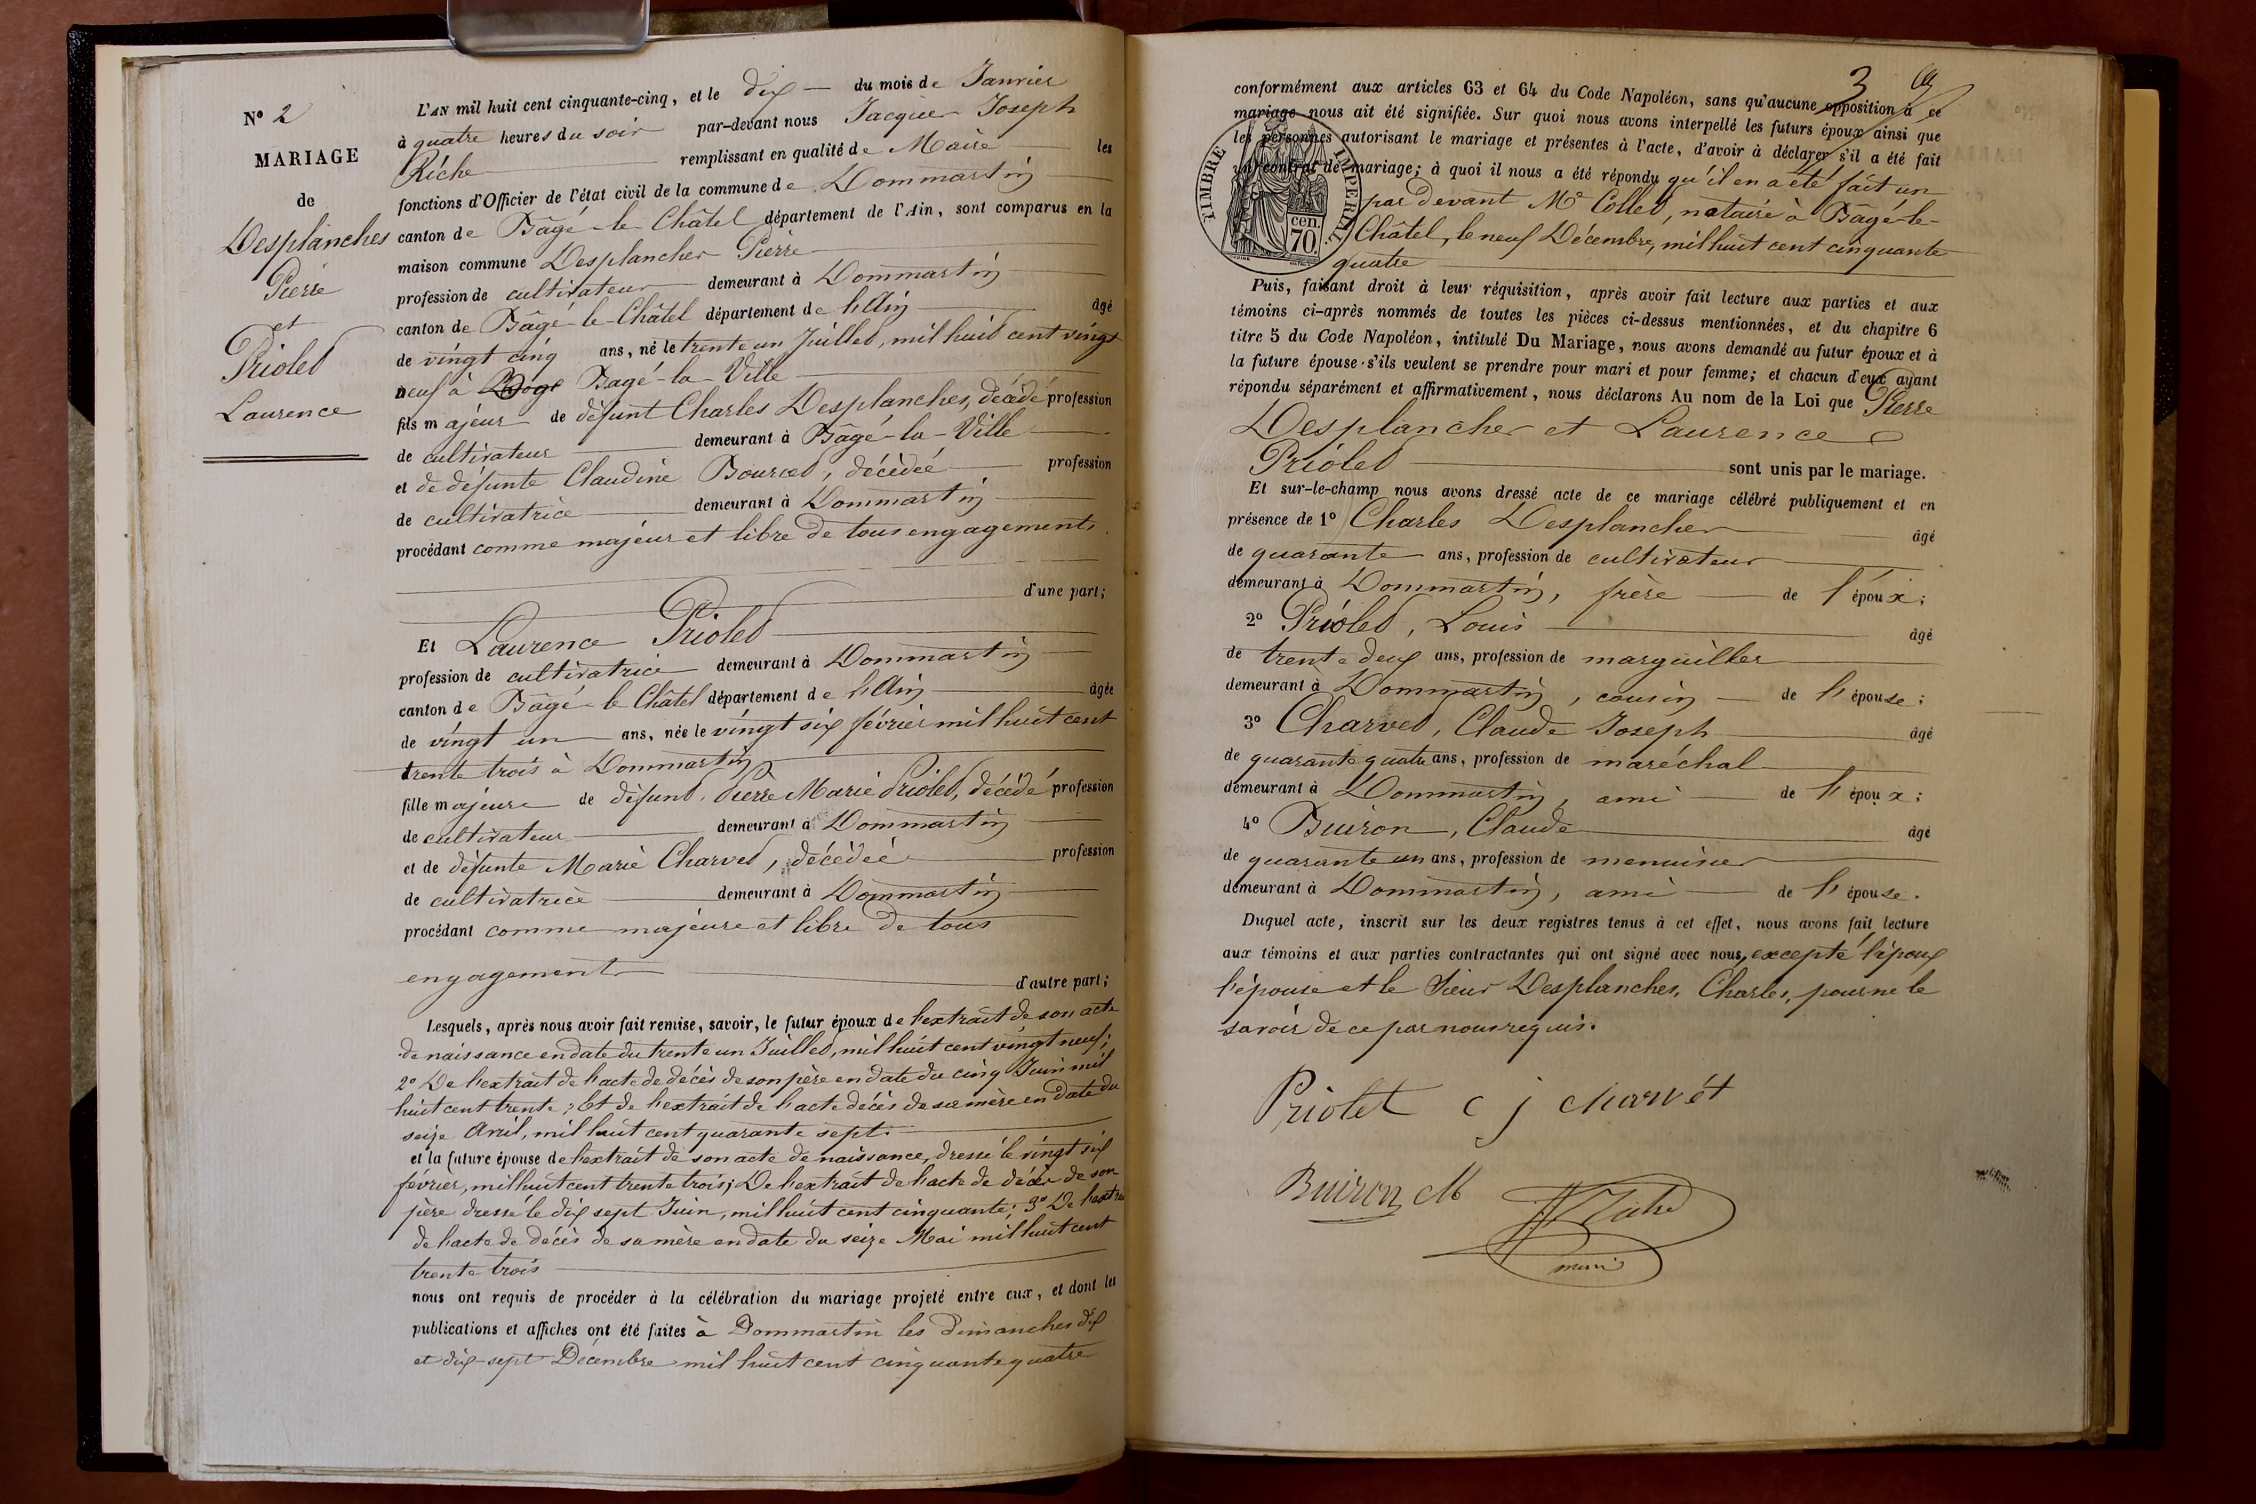 N° 2
MARIAGE
de
Desplanches
Pierre
et
Priolet
Laurence
L'AN mil huit cent cinquante-cinq, et le dix du mois de Janvier
à quatre heures du soir par-devant nous Jacques Joseph
Riche remplissant en qualité de Maire les
fonctions d'Officier de l'état civil de la commune de Dommartin
canton de Bâgé-le-Châtel département de l'Ain, sont comparus en la
maison commune Desplanches Pierre
profession de cultivateur demeurant à Dommartin
canton de Bâgé-le-Châtel département de l'Ain âgé
de vingt cinq ans, né le trente un Juillet, mil huit cent vingt
neuf à Bagé-la-Ville
fils majeur de défunt Charles Desplanches, décédé profession
de cultivateur demeurant à Bâgé-la-Ville
et de défunte Claudine Bourcet, décédée profession
de cultivatrice demeurant à Dommartin
procédant comme majeur et libre de tous engagements
d'une part;
Et Laurence Priolet
profession de cultivatrice demeurant à Dommartin
canton de Bâgé-le-Châtel département de l'Ain âgée
de vingt un ans, née le vingt six février mil huit cent
trente trois à Dommartin
fille majeure de défunt Pierre Marie Priolet, décédé profession
de cultivateur demeurant à Dommartin
et de défunte Marie Charvet, décédée profession
de cultivatrice demeurant à Dommartin
procédant comme majeure et libre de tous
engagements
d'autre part;
Lesquels, après nous avoir fait remise, savoir, le futur époux de l'extrait de son acte
de naissance en date du trente un Juillet, mil huit cent vingt neuf;
2° De l'extrait de l'acte de décès de son père en date du cinq Juin mil
huit cent trente; Et de l'extrait de l'acte décès de sa mère en date du
seize Avril, mil huit cent quarante sept.
et la future épouse de l'extrait de son acte de naissance, dressé le vingt six
février, mil huit cent trente trois; De l'extrait de l'acte de décès de son
père dressé le dix sept Juin, mil huit cent cinquante; 3° De l'extrait
de l'acte de décès de sa mère en date du seize Mai mil huit cent
trente trois
nous ont requis de procéder à la célébration du mariage projeté entre eux, et dont les
publications et affiches ont été faites à Dommartin les dimanches dix
et dix-sept Décembre mil huit cent cinquante quatre
3
conformément aux articles 63 et 64 du Code Napoléon, sans qu'aucune opposition à ce
mariage nous ait été signifiée. Sur quoi nous avons interpellé les futurs époux ainsi que
les personnes autorisant le mariage et présentes à l'acte, d'avoir à déclarer s'il a été fait
un contrat de mariage; à quoi il nous a été répondu qu'il en a été fait un
TIMBRE IMPERIAL.
cen.
70
par devant Me Collet, notaire à Bâgé-le-
Châtel, le neuf Décembre, mil huit cent cinquante
quatre
Puis, faisant droit à leur réquisition, après avoir fait lecture aux parties et aux
témoins ci-après nommés de toutes les pièces ci-dessus mentionnées, et du chapitre 6
titre 5 du Code Napoléon, intitulé Du Mariage, nous avons demandé au futur époux et à
la future épouse s'ils veulent se prendre pour mari et pour femme; et chacun d'eux ayant
répondu séparément et affirmativement, nous déclarons Au nom de la Loi que Pierre
Desplanches et Laurence
Priolet sont unis par le mariage.
Et sur-le-champ nous avons dressé acte de ce mariage célébré publiquement et en
présence de 1° Charles Desplanches âgé
de quarante ans, profession de cultivateur
demeurant à Dommartin, frère de l'époux;
2° Priolet, Louis âgé
de trente deux ans, profession de marguiller
demeurant à Dommartin, cousin de l'épouse;
3° Charvet, Claude Joseph âgé
de quarante quatre ans, profession de maréchal
demeurant à Dommartin, ami de l'époux;
4° Buiron, Claude âgé
de quarante un ans, profession de menuisier
demeurant à Dommartin, ami de l'épouse.
Duquel acte, inscrit sur les deux registres tenus à cet effet, nous avons fait lecture
aux témoins et aux parties contractantes qui ont signé avec nous, excepté l'époux
l'épouse et le Sieur Desplanches, Charles, pour ne le
savoir de ce par nous requis.
Priolet c j charvét
Buiron
Riche
maire